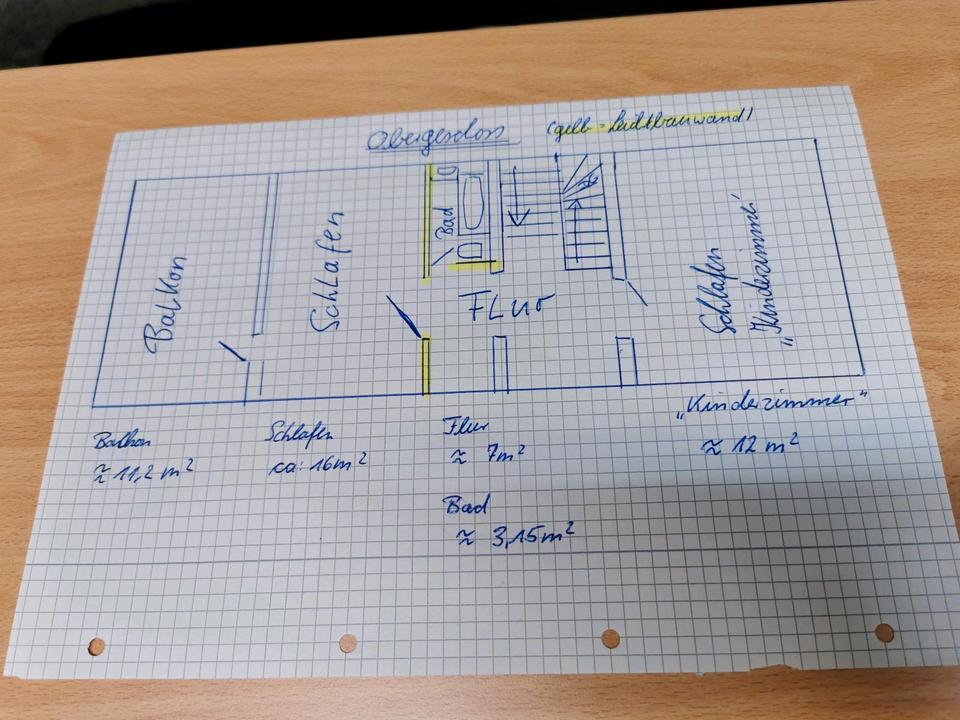 Obergeschoss (gelb = Leichtbauwand)
Balkon
Schlafen
Bad
Flur
Schlafen
"Kinderzimmer"
Balkon
≈ 11,2 m²
Schlafen
ca: 16m²
Flur
≈ 7m²
Bad
≈ 3,15m²
"Kinderzimmer"
≈ 12 m²